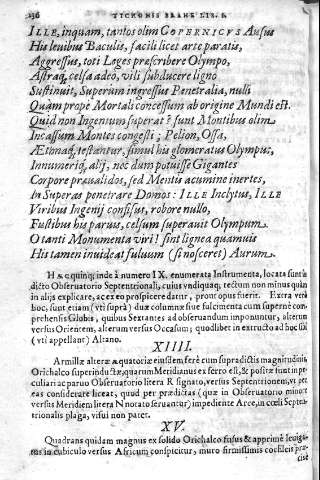 236 TYCHONIS BRAHE LIB. I.
ILLE, inquam, tantos olim COPERNICVS Ausus
His leuibus Baculis, facili licet arte paratis,
Aggressus, toti Leges præscribere Olympo,
Astraq; celsa adeo, vili subducere ligno
Sustinuit, Superûm ingressus Penetralia, nulli
Quàm propè Mortali concessum ab origine Mundi est.
Quid non Ingenium superat? sunt Montibus olim
Incassum Montes congesti; Pelion, Ossa,
Ætnaq;, testantur, simul his glomeratus Olympus,
Innumeriq; alij, nec dum potuisse Gigantes
Corpore præualidos, sed Mentis acumine inertes,
In Superas penetrare Domos: ILLE Inclytus, ILLE
Viribus Ingenij confisus, robore nullo,
Fustibus his paruus, celsum superauit Olympum.
O tanti Monumenta viri! sint lignea quamuis
His tamen inuideat fuluum (si nosceret) Aurum.
Hæc quinq; inde à numero IX. enumerata Instrumenta, locata sunt in
dicto Obseruatorio Septentrionali, cuius vndiquaq; tectum non minus quàm
in alijs explicare, ac ex eo prospicere datur, prout opus fuerit. Extra verò
hoc, sunt etiam (vti suprà) duæ columnæ siue fulcimenta cum supernè com-
prehensis Globis, quibus Sextantes ad obseruandum imponuntur, alterum
versus Orientem, alterum versus Occasum; quodlibet in extructo ad hoc suo
(vti appellant) Altano.
XIIII.
Armillæ alteræ æquatoriæ eiusdem ferè cum supradictis magnitudinis
Orichalco superinductæ, quarum Meridianus ex ferro est, & positæ sunt in pe-
culiari ac paruo Obseruatorio litera R signato, versus Septentrionem, vt per
eas considerare liceat, quod per prædictas (quæ in Obseruatorio minore
versus Meridiem litera N notato seruantur) impediente Arce, in cœli Septen-
trionalis plaga, visui non patet.
XV.
Quadrans quidam magnus ex solido Orichalco fusus & apprimè leuiga-
tus in cubiculo versus Africum conspicitur, muro firmissimis coclileis præ-
cisè